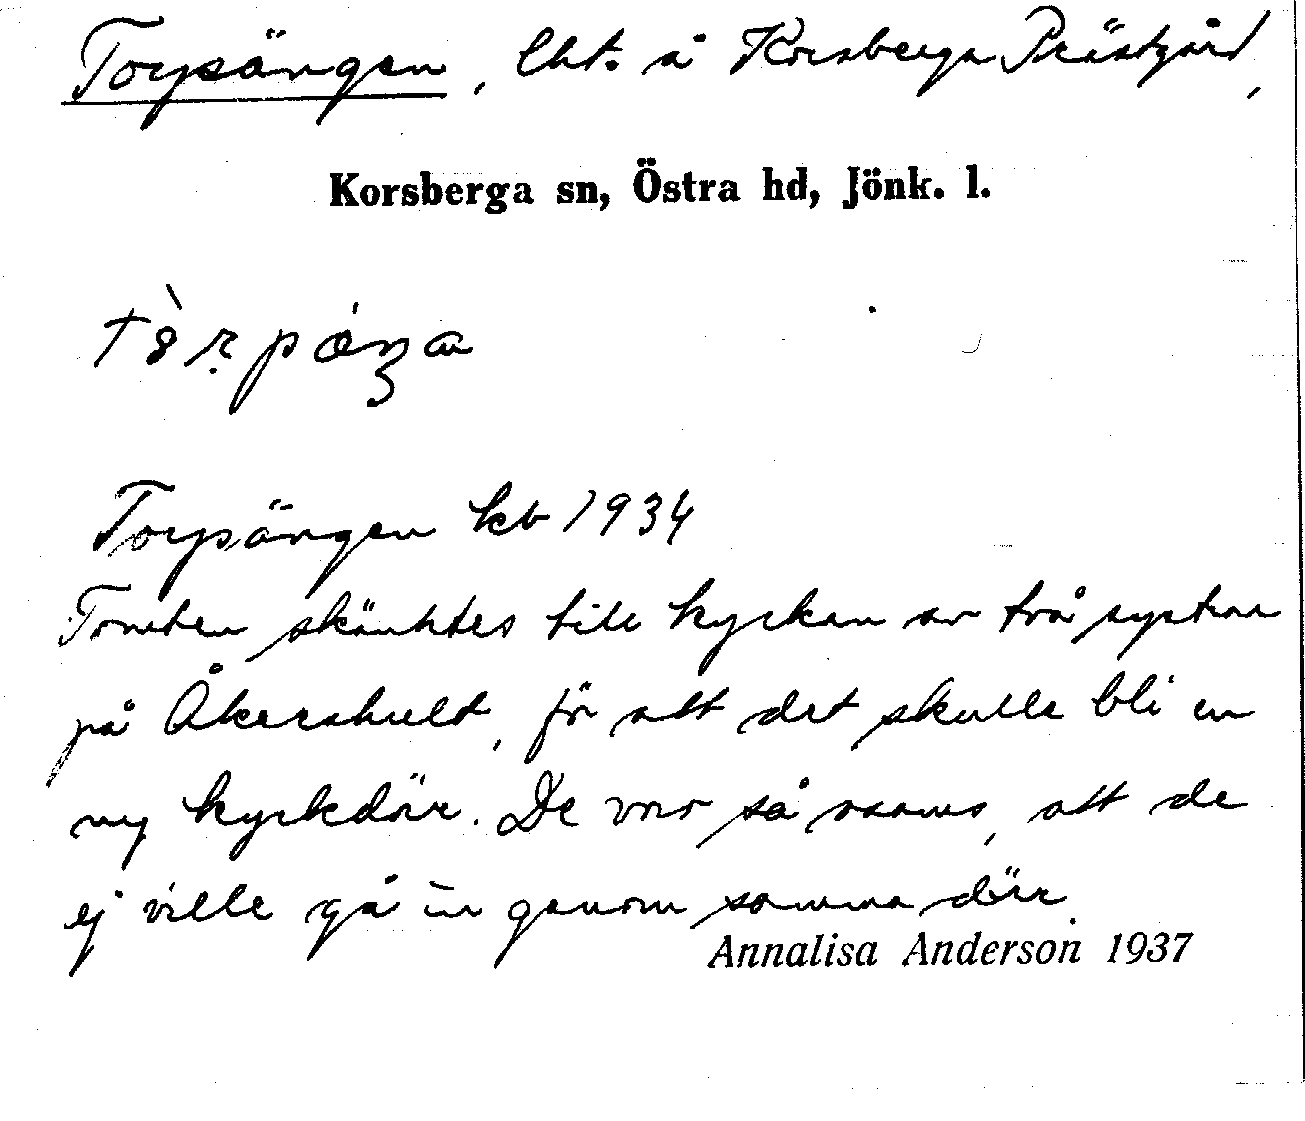 Torpängen, lht. å Korsberga Prästgård,
Korsberga sn, Östra hd, Jönk. l.
Torpängen kb 1934
Tomten skänktes till kyrkan av två systrar
på Åkershult, för att det skulle bli en
ny kyrkdörr. De voro så osams, att de
ej ville gå in genom samma dörr.
Annalisa Anderson 1937